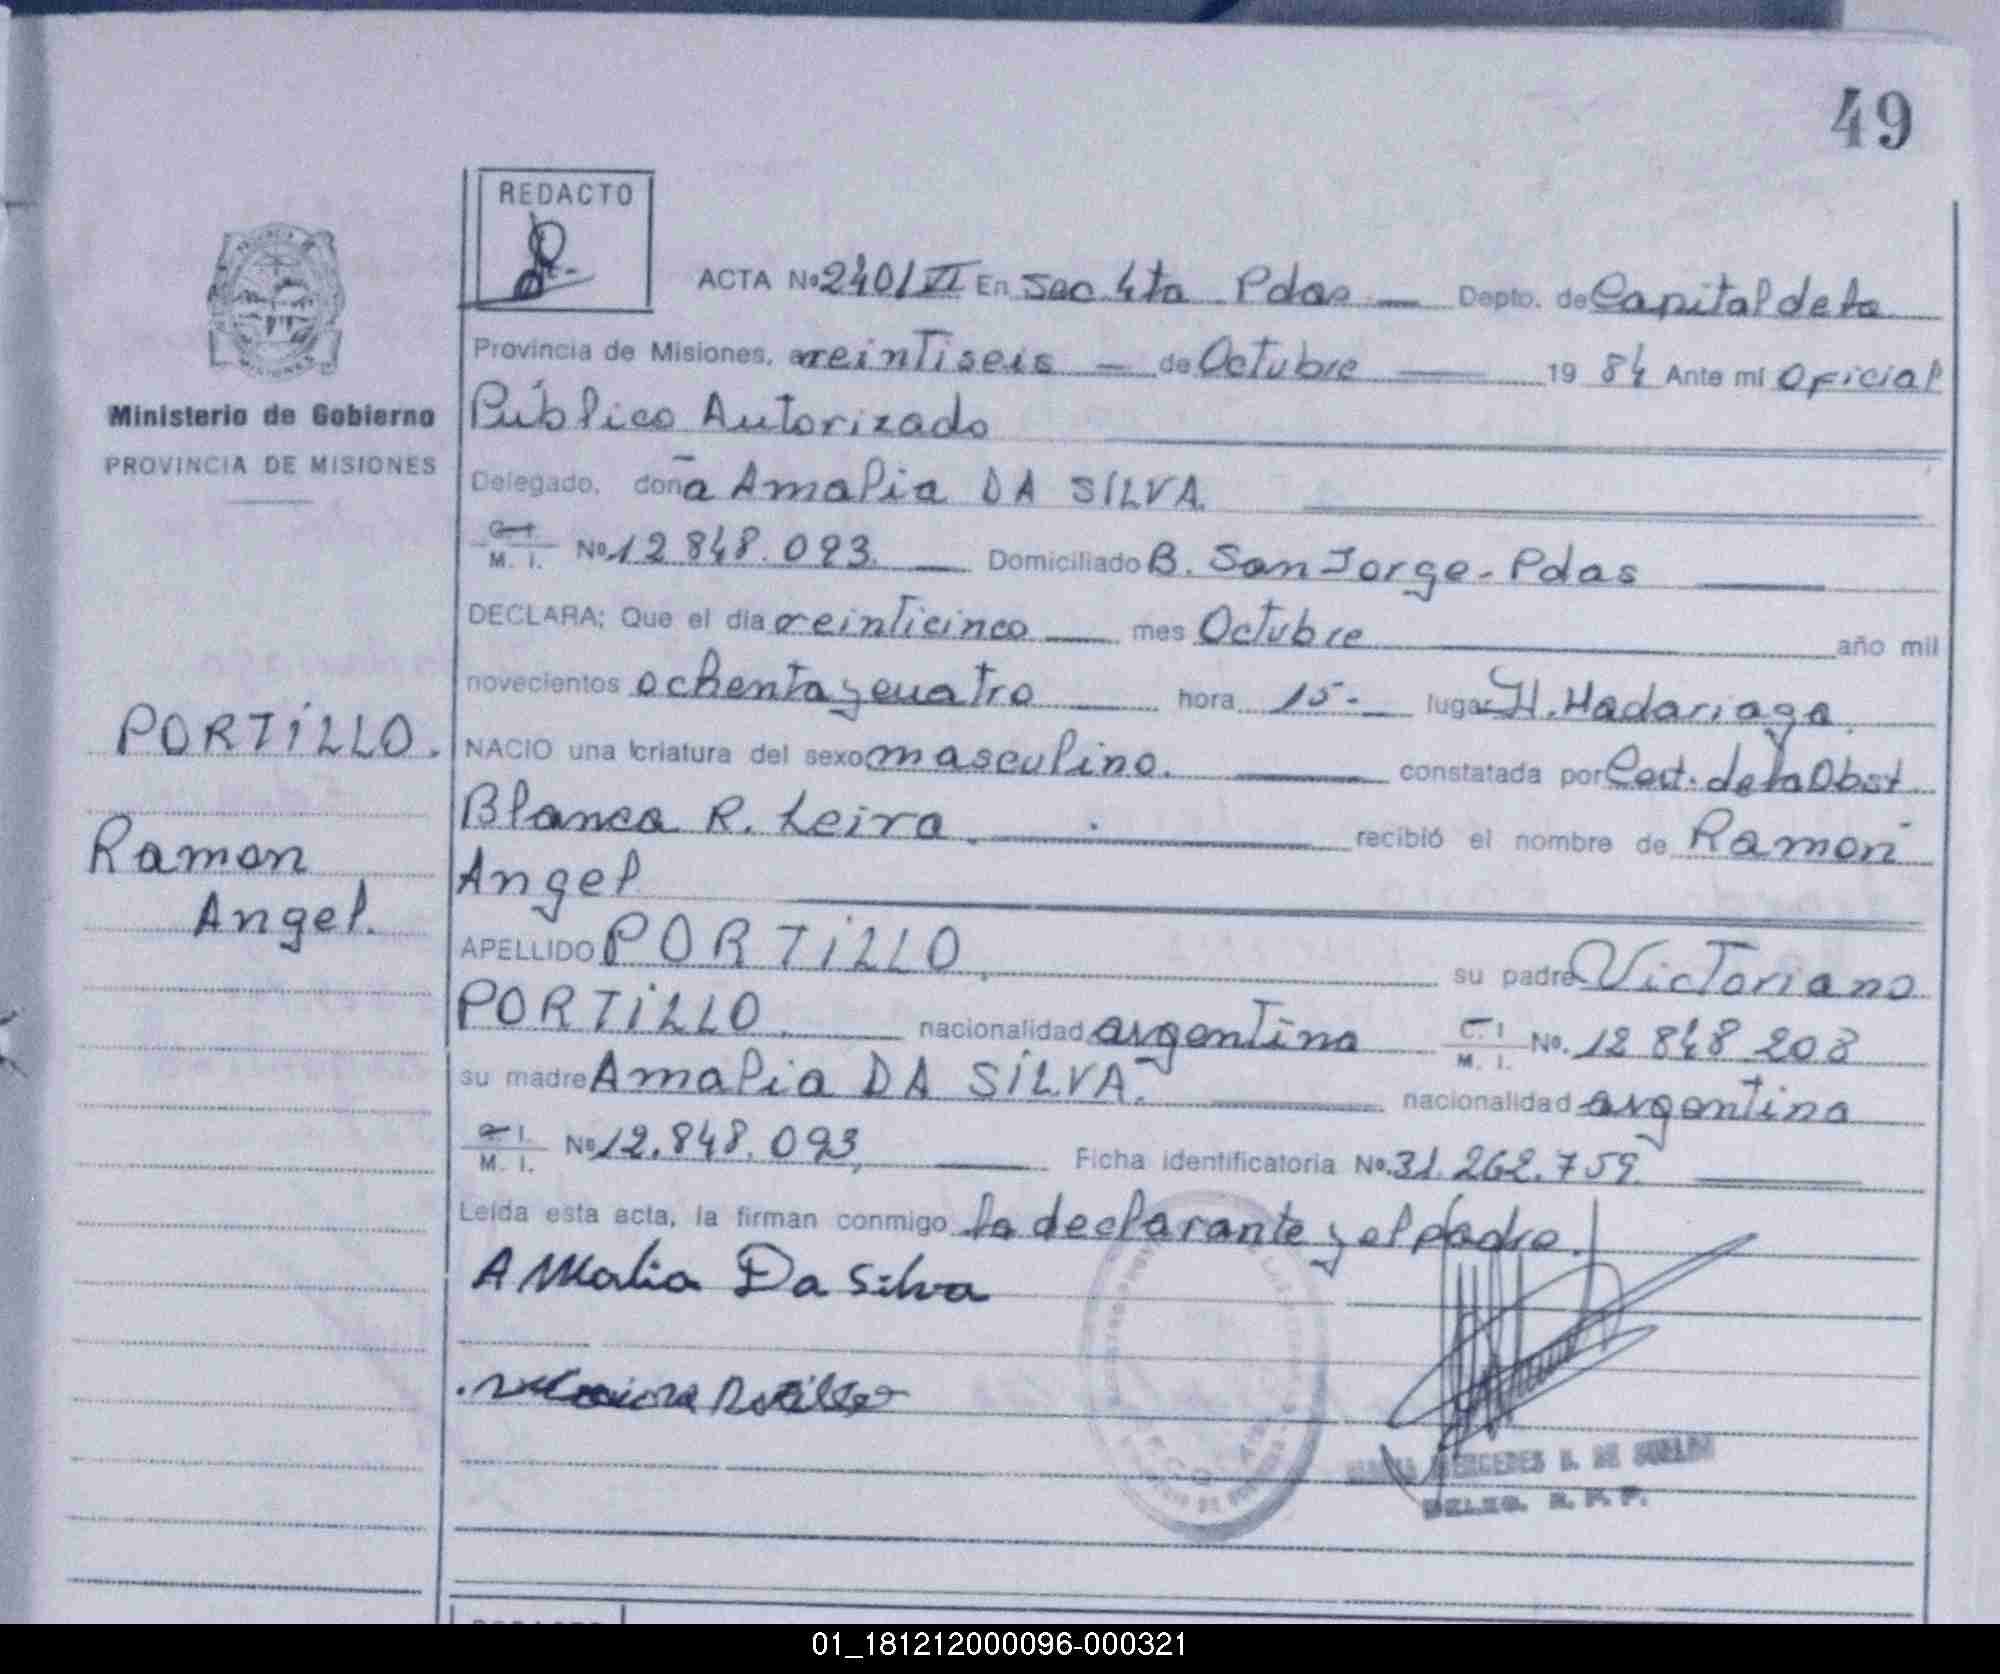 49
REDACTO
ACTA No 2401 VI En Sec. 4ta Pdas Depto. de Capital de la
Provincia de Misiones, a veintiseis de Octubre 19 84 Ante mi Oficial
Ministerio de Gobierno
PROVINCIA DE MISIONES
Público Autorizado
Delegado, doña Amalia DA SILVA.
C.I. M. I. No 12.848.093. Domiciliado B. San Jorge - Pdas
DECLARA; Que el dia veinticinco mes Octubre año mil
novecientos ochenta y cuatro hora 15.- lugar H. Madariaga.
PORTILLO.
NACIO una criatura del sexo masculino. constatada por Cert. de la Obst
Blanca R. Leira. recibió el nombre de Ramón
Ramon
Angel.
Angel
APELLIDO PORTILLO. su padre Victoriano
PORTILLO. nacionalidad argentina C. I. M. I. No. 12 848 203
su madre Amalia DA SILVA. nacionalidad argentina
C. I. M. I. No 12.848.093, Ficha identificatoria No. 31.262.759
Leída esta acta, la firman conmigo la declarante y el padre.
Amalia Da Silva
MERCEDES
DELEG. R. P. P.
01_181212000096-000321